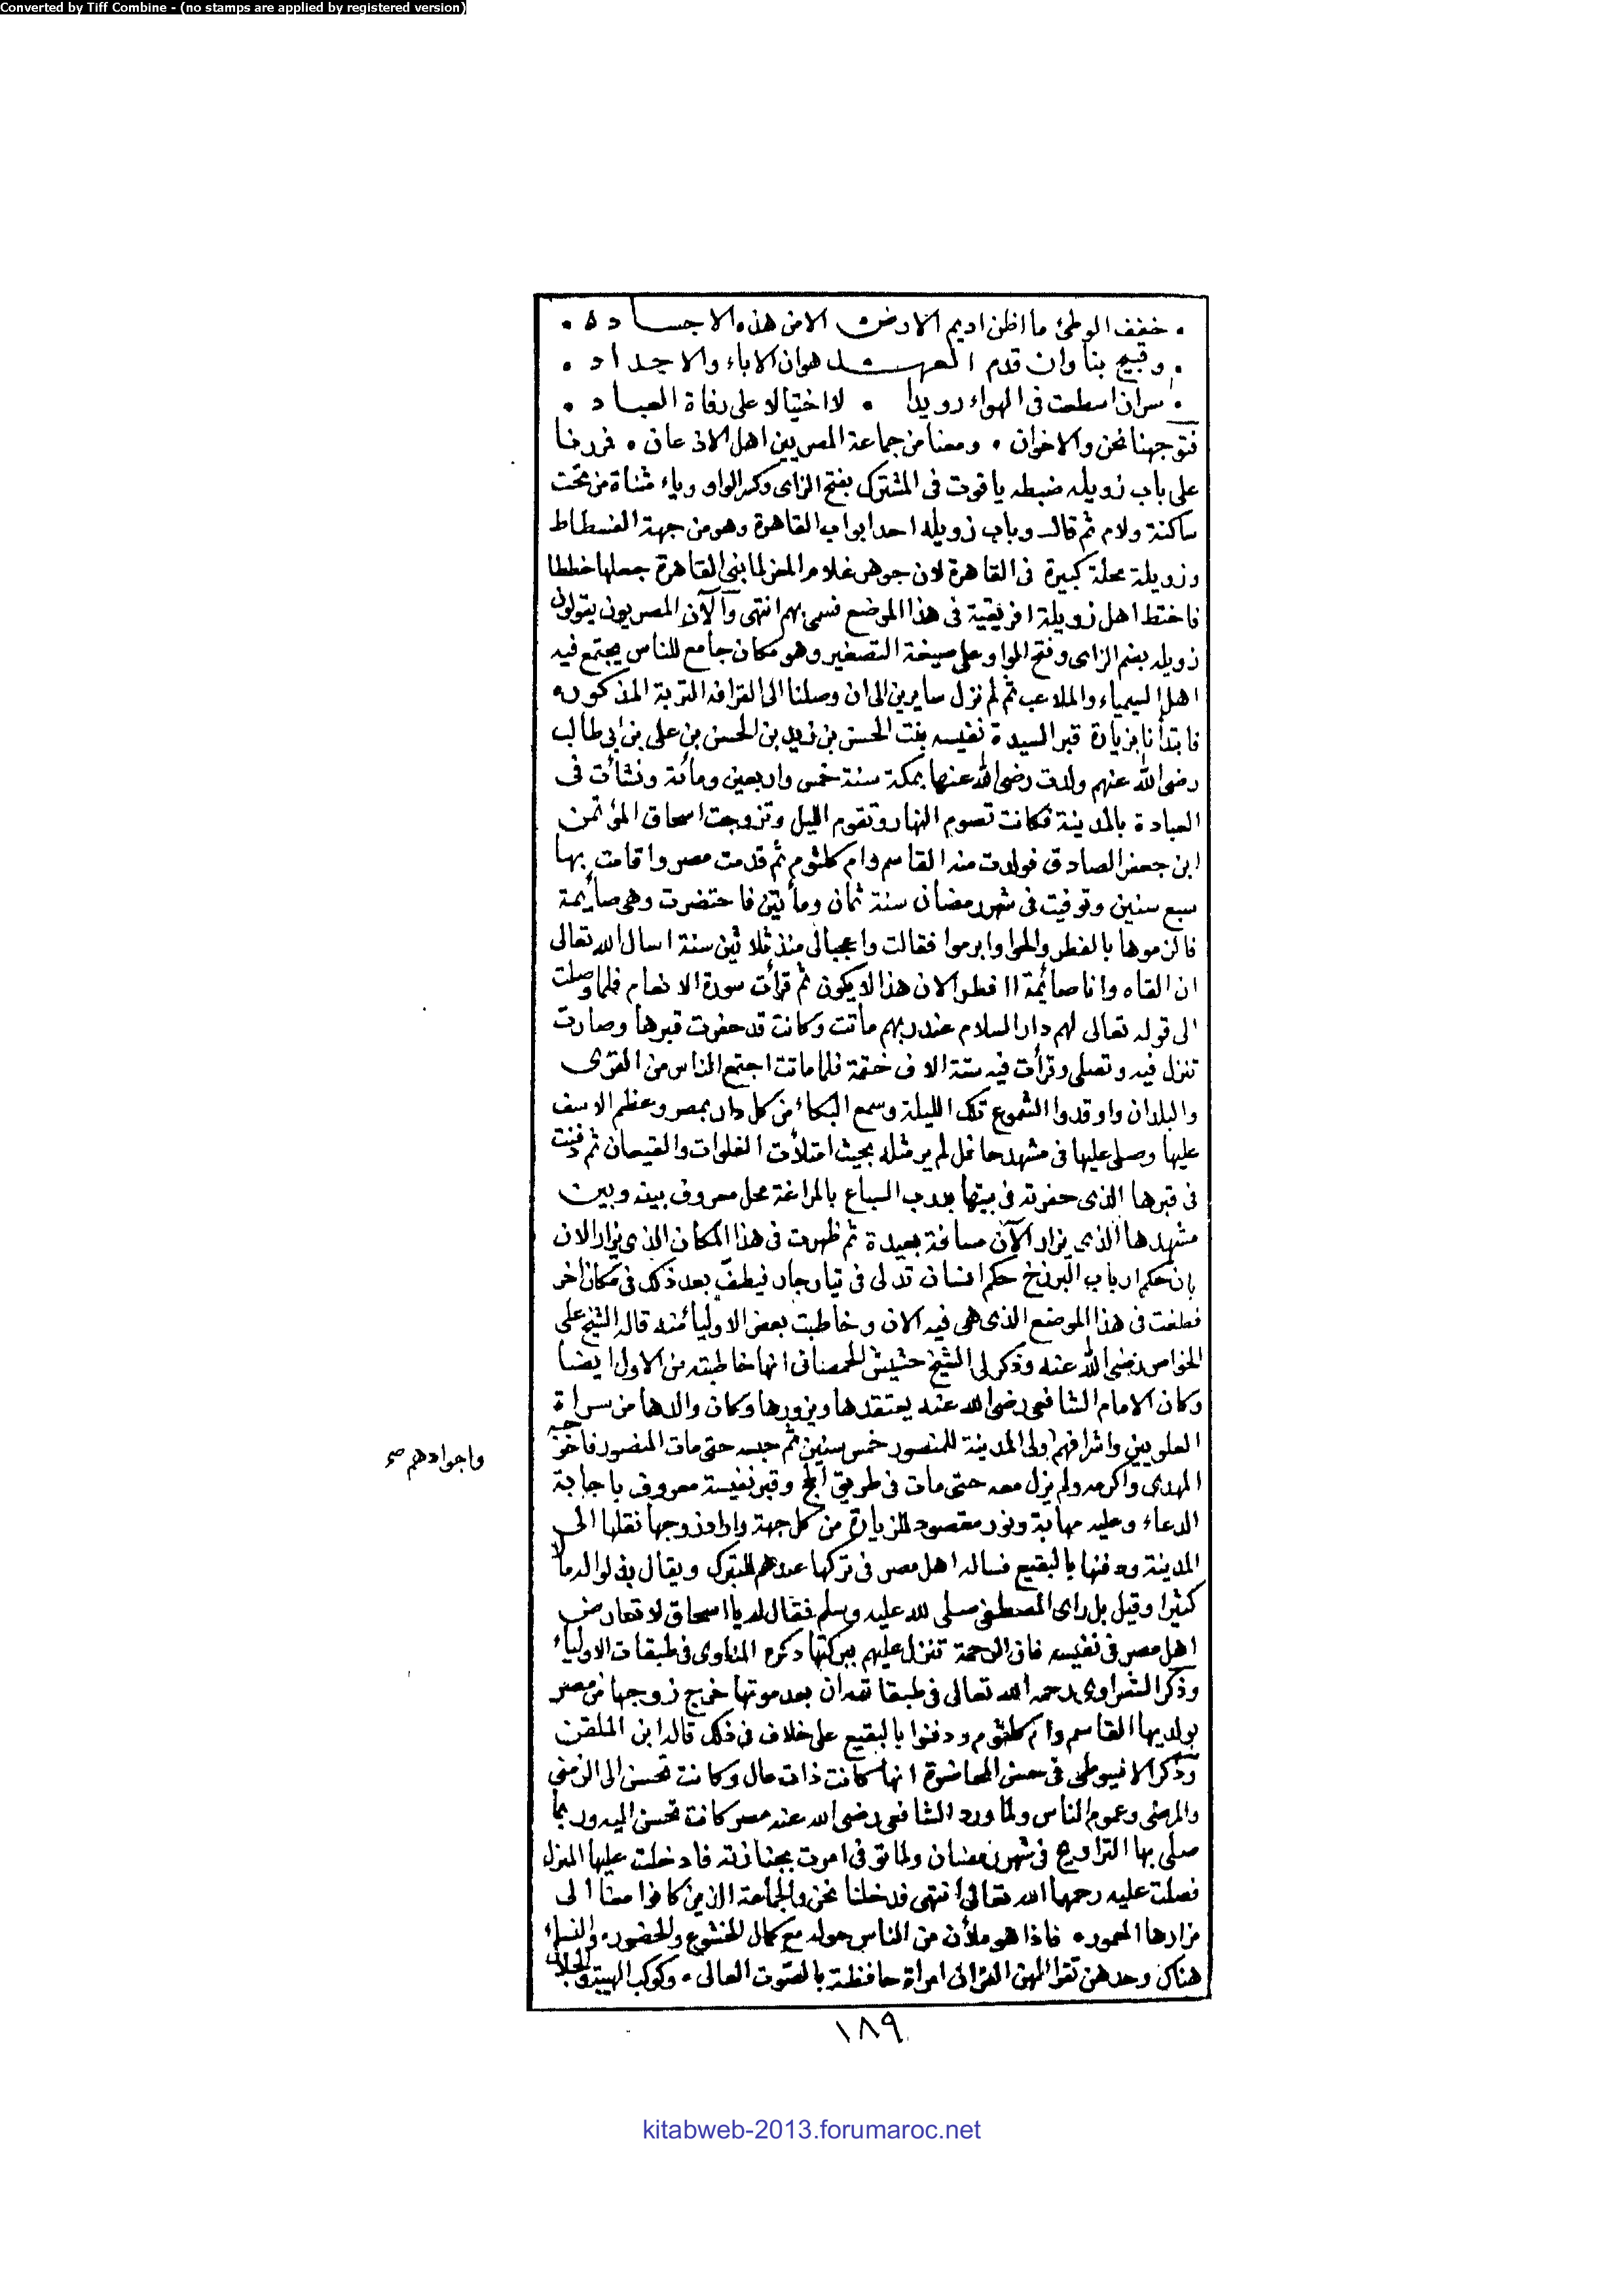 Converted by Tiff Combine - (no stamps are applied by registered version)
. خفف الوطئ ما اظن اديم الارض الا من هذه الاجساد ه .
. وقبيح بنا وان قدم العهد هوان الاباء والاجداد .
. سر ان اسطعت فى الهواء رويدا . لا اختيالا على رفاة العباد .
فتوجهنا نحن والاخوان . ومعنا من جماعة المصريين اهل الاذعان . فمررنا
على باب زويله ضبطه ياقوت فى المشترك بفتح الزاى وكسر الواو وياء مثناة من تحت
ساكنة ولام ثم قال وباب زويله احد ابواب القاهرة وهو من جهة الفسطاط
وزويلة محلة كبيرة فى القاهرة لان جوهر غلام المعز لما بنى القاهرة جعلها خططا
فاختط اهل زويلة افريقية فى هذا الموضع فسمى بهم انتهى والآن المصريون يقولون
زويله بضم الزاى وفتح الواو على صيغة التصغير وهو مكان جامع للناس يجتمع فيه
اهل السيمياء والملاعب ثم لم نزل سايرين الى ان وصلنا الى القرافه التربة المذكوره
فابتدأنا بزيارة قبر السيدة نفيسه بنت الحسن بن زيد بن الحسن بن على بن ابى طالب
رضى الله عنهم ولدت رضى الله عنها بمكة سنة خمس واربعين ومائة ونشأت فى
العبادة بالمدينة فكانت تصوم النهار وتقوم الليل وتزوجت اسحاق المؤتمن
ابن جعفر الصادق فولدت منه القاسم وام كلثوم ثم قدمت مصر واقامت بها
سبع سنين وتوفيت فى شهر رمضان سنة ثمان ومأتين فاحتضرت وهى صايمة
فالزموها بالفطر والحوا وابرموا فقالت واعجبا لى منذ ثلاثين سنة اسال الله تعالى
ان القاه وانا صائمة اافطر الان هذا لا يكون ثم قرأت سورة الانعام فلما وصلت
الى قوله تعالى لهم دار السلام عند ربهم ماتت وكانت قد حفرت قبرها وصارت
تنزل فيه وتصلى وقرأت فيه ستة الاف ختمة فلما ماتت اجتمع الناس من القرى
والبلدان واوقدوا الشموع تلك الليلة وسمع البكاء من كل دار بمصر وعظم الاسف
عليها وصلى عليها فى مشهد حافل لم ير مثله بحيث امتلأت الفلوات والقيعان ثم دفنت
فى قبرها الذى حفرته فى بيتها بدرب السباع بالمراغة محل معروف بينه وبين
مشهدها الذى يزار الآن مسافة بعيدة ثم ظهرت فى هذا المكان الذى يزار الان
بان حكم ارباب البرزخ حكم انسان تدلى فى تيار جار فيطف بعد ذلك فى مكان اخر
فطفت فى هذا الموضع الذى هى فيه الان وخاطبت بعض الاولياء منه قاله الشيخ على
الخواص رضى الله عنه وذكر لى الشيخ حشيش الحمصانى انها خاطبته من الاول ايضا
وكان الامام الشافعى رضى الله عنه يعتقدها ويزورها وكان والدها من سراة
العلويين واشرافهم ولى المدينة للمنصور خمس سنين ثم حبسه حتى مات المنصور فاخرجه
واجوادهم صح
المهدى واكرمه ولم يزل معه حتى مات فى طريق الحج وقبر نفيسة معروف باجابة
الدعاء وعليه مهابة ونور مقصود للزيارة من كل جهة واراد زوجها نقلها الى
المدينة ودفنها بالبقيع فساله اهل مصر فى تركها عندهم للتبرك ويقال بذلوا له مالا
كثيرا وقيل بل راى المصطفى صلى لله عليه وسلم فقال له يا اسحاق لا تعارض
اهل مصر فى نفيسه فان الرحمة تنزل عليهم ببركتها ذكره المناوى فى طبقات الاولياء
وذكر الشعراوى رحمه الله تعالى فى طبقاته ان بعد موتها خرج زوجها من مصر
بولديها القاسم وام كلثوم ودفنوا بالبقيع على خلاف فى ذلك قاله ابن الملقن
وذكر الاسيوطى فى حسن المحاضرة انها كانت ذات مال وكانت تحسن الى الزمنى
والمرضى وعموم الناس ولما ورد الشافعى رضى الله عنه مصر كانت تحسن اليه وربما
صلى بها التراويح فى شهر رمضان ولما توفى امرت بجنازته فادخلت عليها المنزل
فصلت عليه رحمها الله تعالى انتهى فدخلنا نحن والجماعة الذين كانوا معنا الى
مزارها المعمور . فاذا هو ملأن من الناس حوله مع كمال الخشوع والحضور . والنساء
هناك وحدهن تقرا لهن القران امراة حافظة بالصوت العالى . وكوكب الهيبة والجلال
١٨٩
kitabweb-2013.forumaroc.net